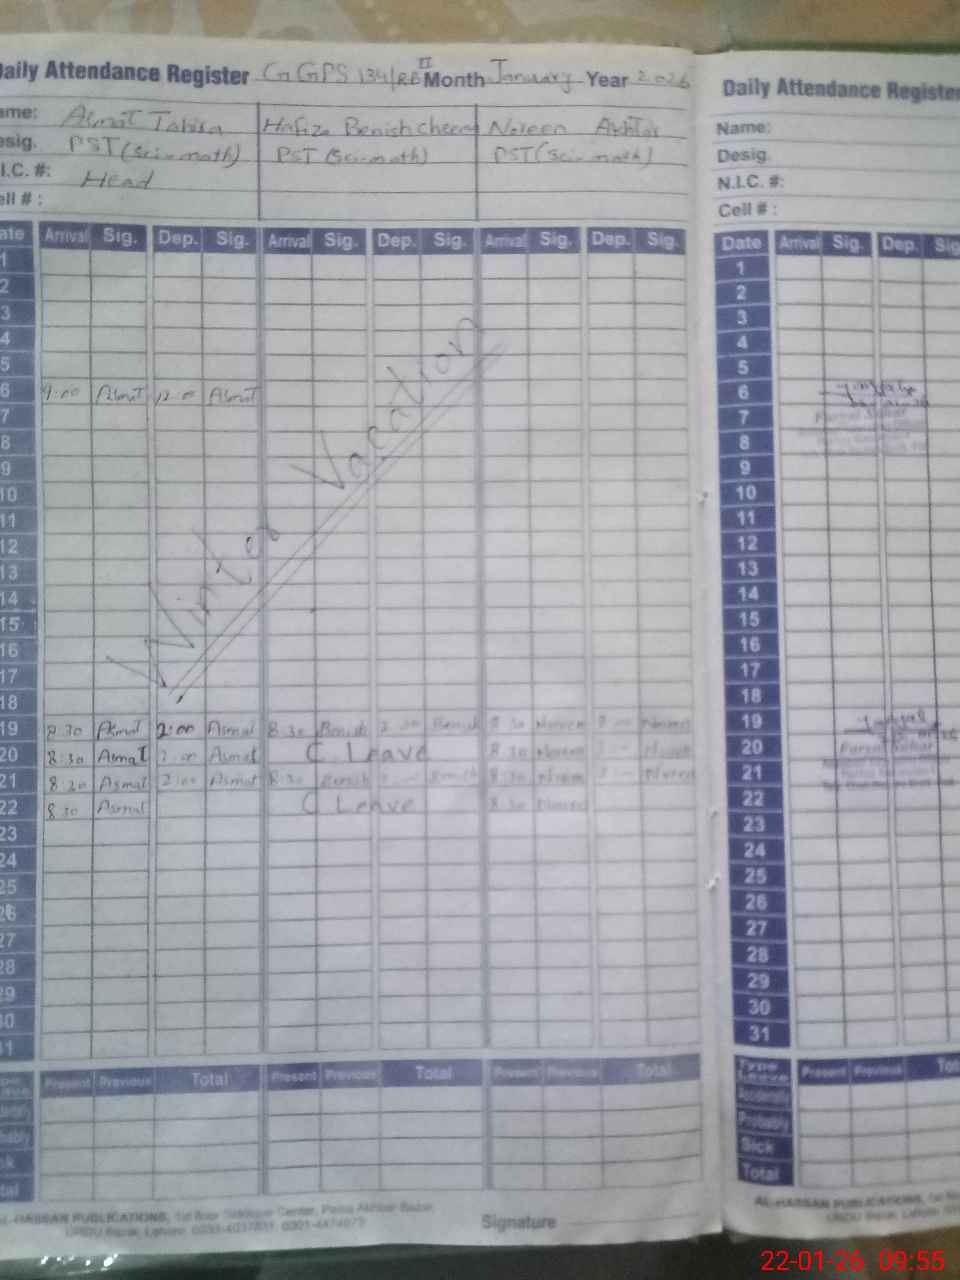 Daily Attendance Register GGPS 134/RB II Month January Year 2026
Name: Asmat Tahira Hafiza Benish Cheema Noreen Akhtar
Desig. PST (Sci-math) PST (Sci-math) PST (Sci-math)
N.I.C. #: Head
Cell # :
Date Arrival Sig. Dep. Sig. Arrival Sig. Dep. Sig. Arrival Sig. Dep. Sig.
1
2
3
4
5
6 9:00 Asmat 12:00 Asmat
7
8
9
10
11
12
13
14
15
16
17
18
Winter Vacation
19 8:30 Asmat 2:00 Asmat 8:30 Benish 2:00 Benish 8:30 Noreen 2:00 Noreen
20 8:30 Asmat 2:00 Asmat C. Leave 8:30 Noreen 2:00 Noreen
21 8:30 Asmat 2:00 Asmat 8:30 Benish 2:00 Benish 8:30 Noreen 2:00 Noreen
22 8:30 Asmat C Leave 8:30 Noreen
23
24
25
26
27
28
29
30
31
Present Previous Total Present Previous Total Present Previous Total
AL-HASSAN PUBLICATIONS,
URDU Bazar, Lahore.
Signature
Daily Attendance Register
Name:
Desig.
N.I.C. #:
Cell # :
Date Arrival Sig. Dep. Sig.
1
2
3
4
5
6
7
8
9
10
11
12
13
14
15
16
17
18
19
20
21
22
23
24
25
26
27
28
29
30
31
Type Leave Present Previous
Probably
Sick
Total
AL-HASSAN PUBLICATIONS,
URDU Bazar, Lahore.
22-01-26 09:55